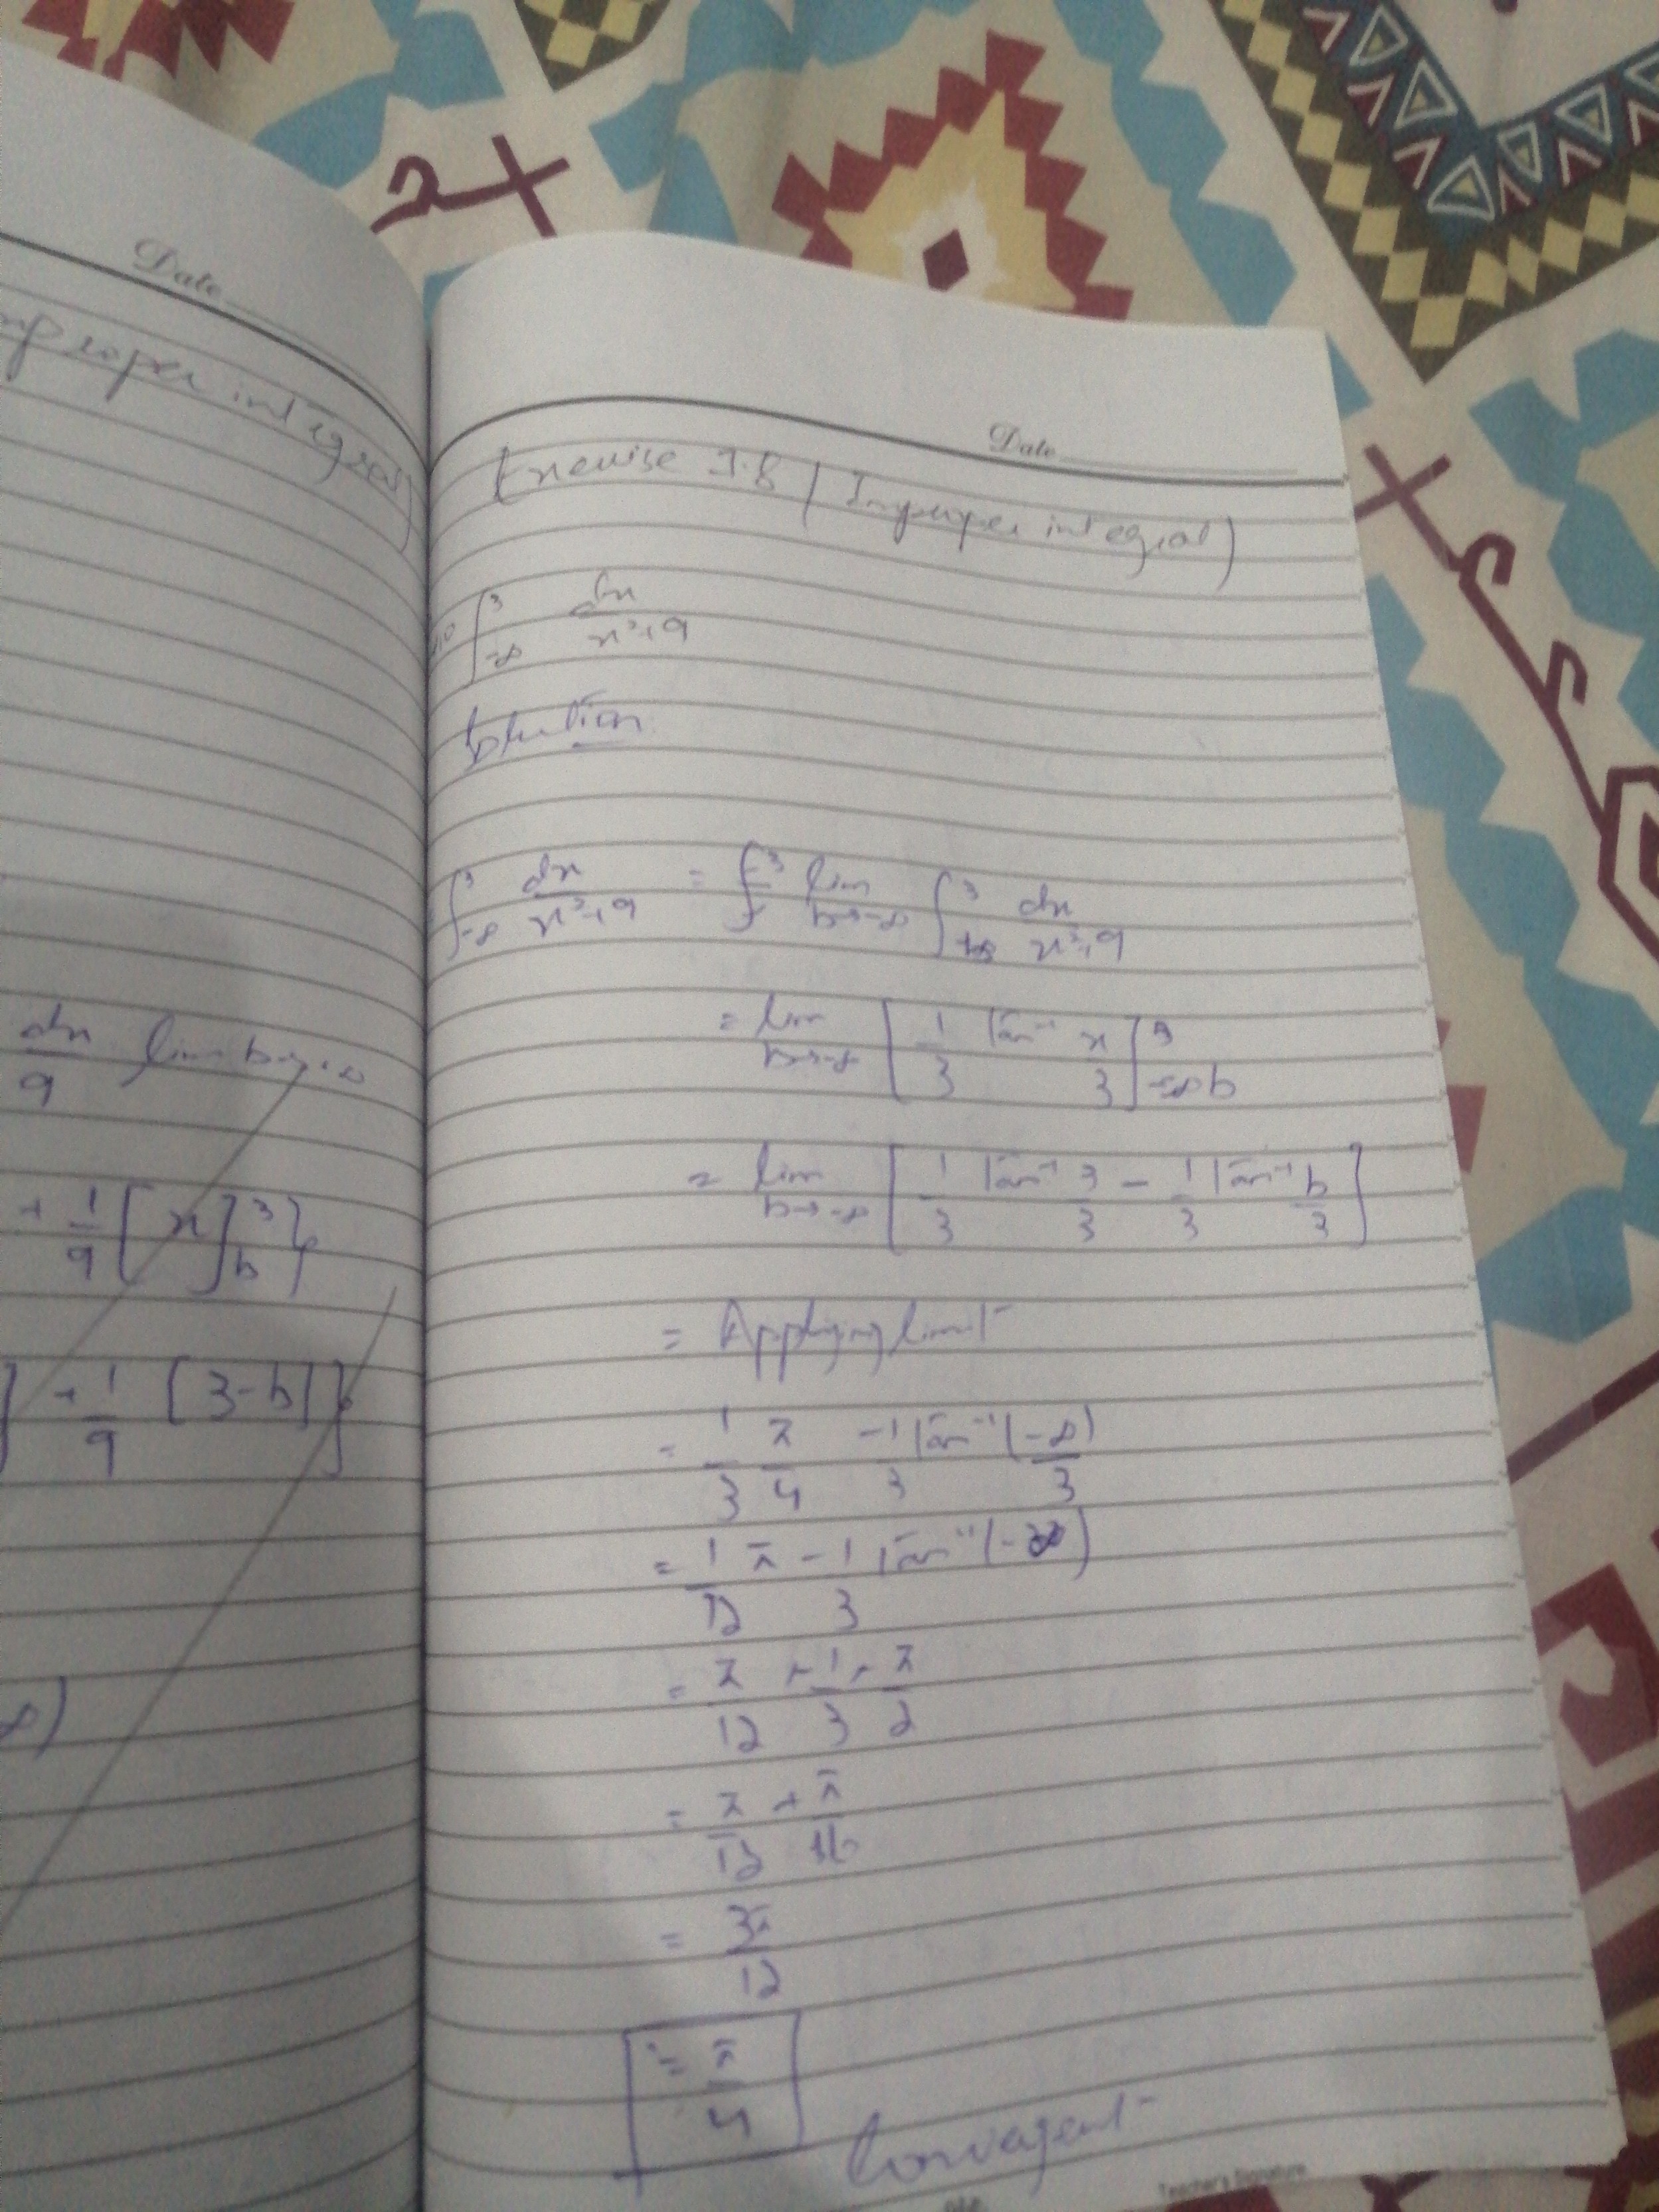 Date
improper integral)
dx/9 lim b→-∞
+ 1/9 [x]³_b}
] + 1/9 [3-b]}
∞)
Date
Exercise 7.8 (Improper integral)
∫_{-∞}^{3} dx/(x²+9)
Solution
∫_{-∞}^{3} dx/(x²+9) = lim_{b→-∞} ∫_{b}^{3} dx/(x²+9)
= lim_{b→-∞} [1/3 tan⁻¹ x/3]^{3}_{b}
= lim_{b→-∞} [1/3 tan⁻¹ 3/3 - 1/3 tan⁻¹ b/3]
= Applying limit
= 1/3 π/4 - 1/3 tan⁻¹(-∞/3)
= 1/12 π - 1/3 tan⁻¹(-∞)
= π/12 + 1/3 · π/2
= π/12 + π/6
= 3π/12
= π/4
Convergent
Teacher's Signature